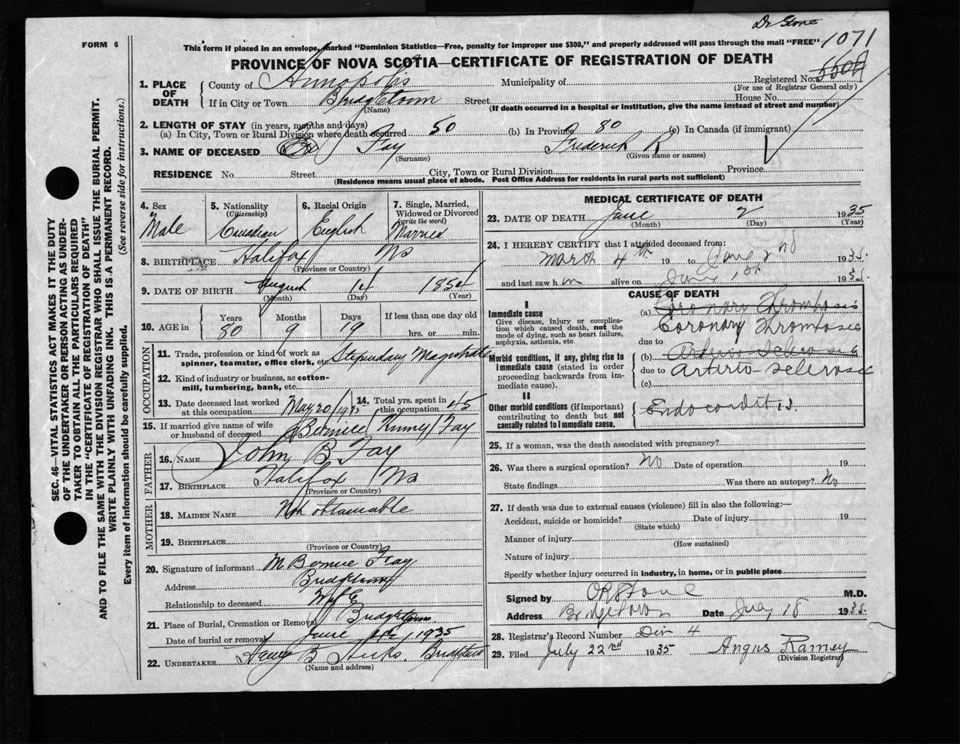 Dr Stone
FORM 6
This form if placed in an envelope, marked "Dominion Statistics—Free, penalty for improper use $300," and properly addressed will pass through the mail "FREE"
1071
PROVINCE OF NOVA SCOTIA—CERTIFICATE OF REGISTRATION OF DEATH
1. PLACE OF DEATH
County of Annapolis Municipality of Registered No.
(For use of Registrar General only)
If in City or Town Bridgetown Street House No.
(Name) (If death occurred in a hospital or institution, give the name instead of street and number)
2. LENGTH OF STAY (in years, months and days)
(a) In City, Town or Rural Division where death occurred 50 (b) In Province 80 (c) In Canada (if immigrant)
3. NAME OF DECEASED Fay Frederick R
(Surname) (Given name or names)
RESIDENCE No Street City, Town or Rural Division Province
(Residence means usual place of abode. Post Office Address for residents in rural parts not sufficient)
SEC. 46—VITAL STATISTICS ACT MAKES IT THE DUTY
OF THE UNDERTAKER OR PERSON ACTING AS UNDER-
TAKER TO OBTAIN ALL THE PARTICULARS REQUIRED
IN THE "CERTIFICATE OF REGISTRATION OF DEATH"
AND TO FILE THE SAME WITH THE DIVISION REGISTRAR WHO SHALL ISSUE THE BURIAL PERMIT.
WRITE PLAINLY WITH UNFADING INK. THIS IS A PERMANENT RECORD.
Every item of information should be carefully supplied. (See reverse side for instructions.)
4. Sex
Male
5. Nationality
(Citizenship)
Canadian
6. Racial Origin
English
7. Single, Married,
Widowed or Divorced
(write the word)
Married
8. BIRTHPLACE Halifax Ns
(Province or Country)
9. DATE OF BIRTH August 14 1854
(Month) (Day) (Year)
10. AGE in Years Months Days If less than one day old
80 9 19 hrs. or min.
OCCUPATION
11. Trade, profession or kind of work as
spinner, teamster, office clerk, etc. Stipendary Magistrate
12. Kind of industry or business, as cotton-
mill, lumbering, bank, etc.
13. Date deceased last worked
at this occupation May 20/1935
14. Total yrs. spent in
this occupation 45
15. If married give name of wife
or husband of deceased Bernice Kinney Fay
FATHER
16. NAME John B Fay
17. BIRTHPLACE Halifax Ns
(Province or Country)
MOTHER
18. MAIDEN NAME Not obtainable
19. BIRTHPLACE
(Province or Country)
20. Signature of informant M Bernice Fay
Address Bridgetown
Relationship to deceased Wife
21. Place of Burial, Cremation or Removal Bridgetown
Date of burial or removal June 1935
22. UNDERTAKER Hicks Bridgetown
(Name and address)
MEDICAL CERTIFICATE OF DEATH
23. DATE OF DEATH June 2 1935
(Month) (Day) (Year)
24. I HEREBY CERTIFY that I attended deceased from:
March 4th 19 to June 2nd 1935
and last saw him alive on June 1st 1935
CAUSE OF DEATH
I
Immediate cause
Give disease, injury or complica-
tion which caused death, not the
mode of dying, such as heart failure,
asphyxia, asthenia, etc
(a) Coronary Thrombosis
Coronary Thrombosis
due to
Morbid conditions, if any, giving rise to
immediate cause (stated in order
proceeding backwards from im-
mediate cause).
(b) Arterio Sclerosis
due to Arterio-sclerosis
(c)
II
Other morbid conditions (if important)
contributing to death but not
causally related to immediate cause.
Endocarditis.
25. If a woman, was the death associated with pregnancy?
26. Was there a surgical operation? No Date of operation 19
State findings Was there an autopsy? No
27. If death was due to external causes (violence) fill in also the following:—
Accident, suicide or homicide? Date of injury 19
(State which)
Manner of injury
(How sustained)
Nature of injury
Specify whether injury occurred in industry, in home, or in public place
Signed by Stone M.D.
Address Bridgetown Date July 18 1935
28. Registrar's Record Number Div 4
29. Filed July 22nd 1935 Angus Ramey
(Division Registrar)